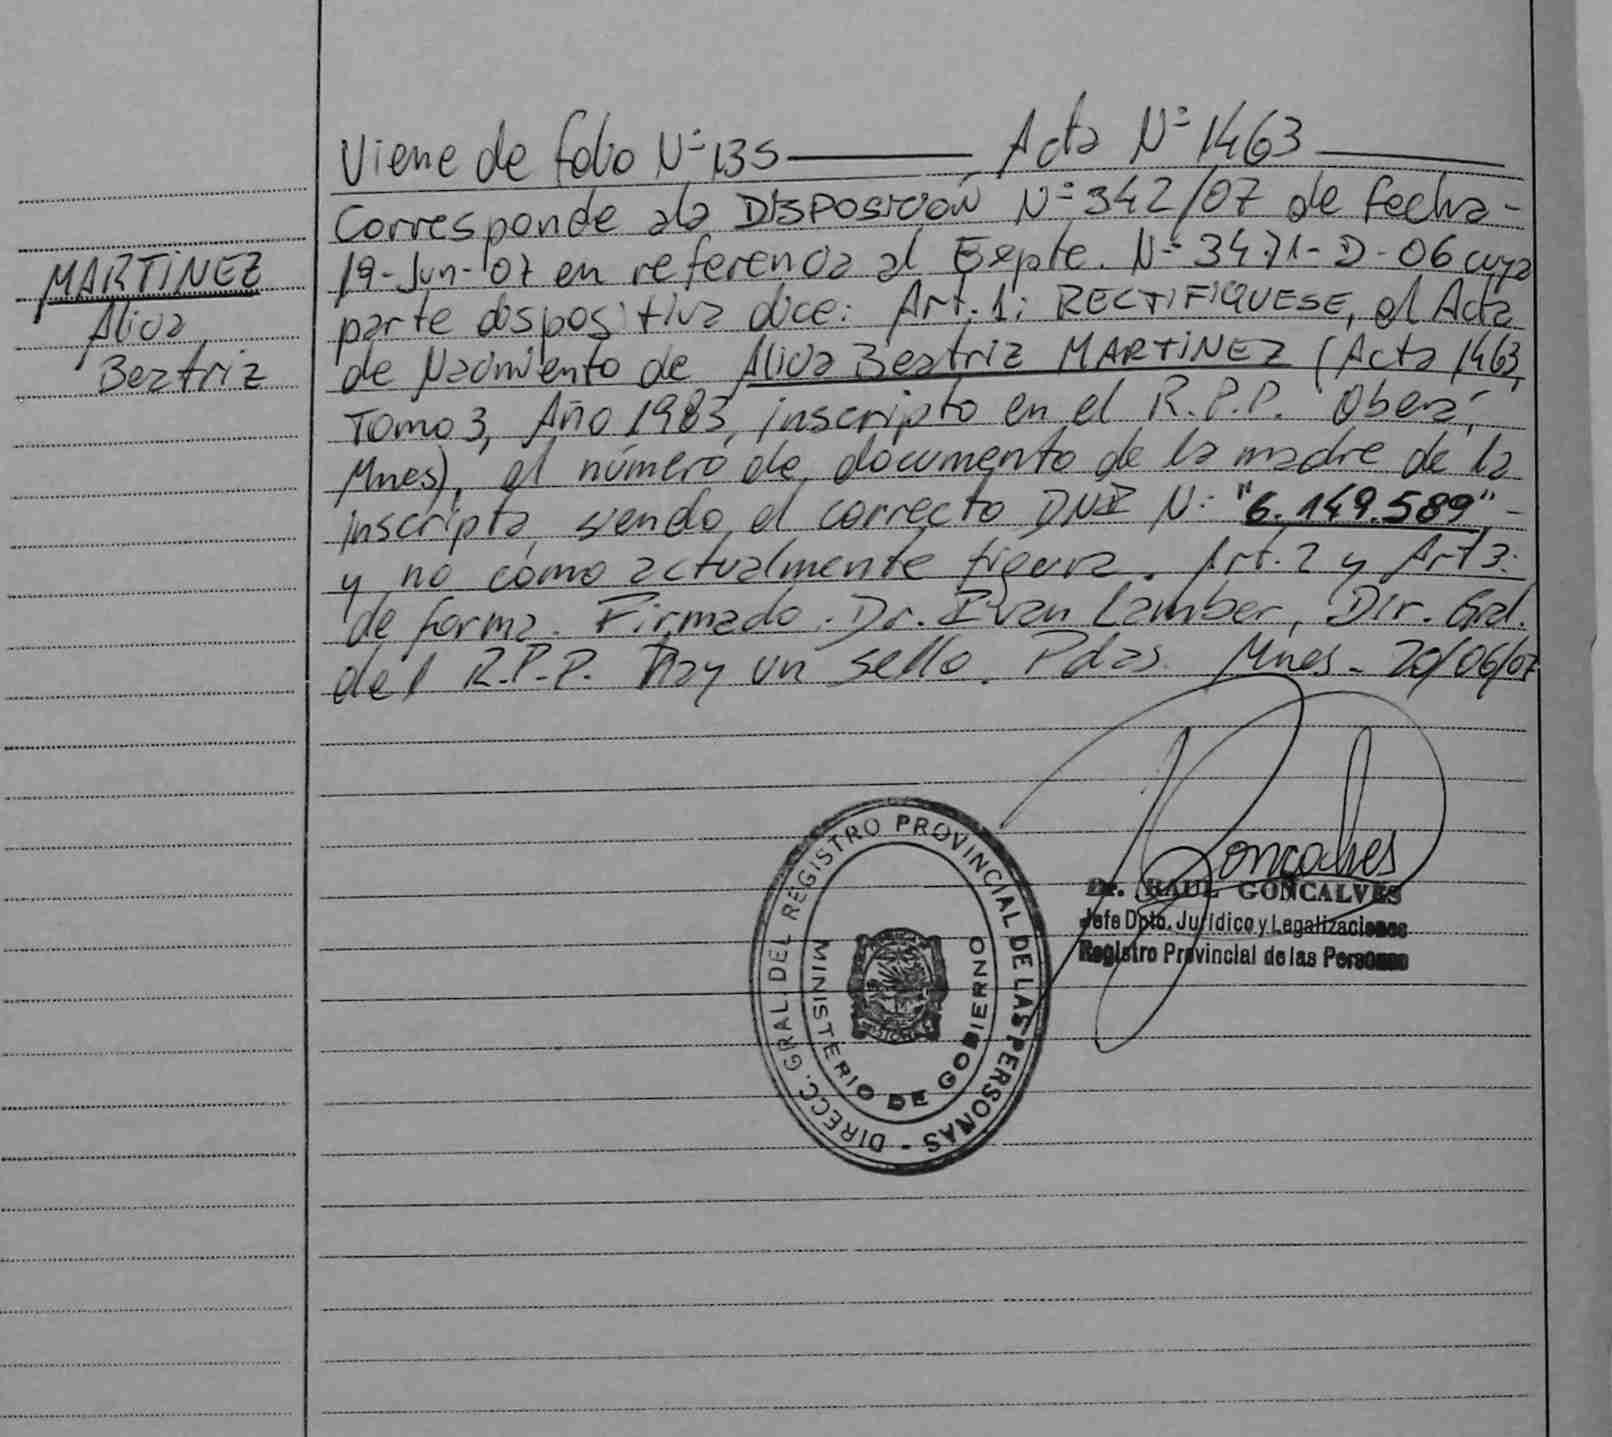 Viene de folio Nº 135 — Acta Nº 1463 —
Corresponde a la DISPOSICIÓN Nº 342/07 de fecha -
MARTINEZ
Alicia
Beatriz
19-Jun-07 en referencia al Expte. Nº 3471-D-06 cuya
parte dispositiva dice: Art. 1: RECTIFIQUESE, el Acta
de Nacimiento de Alicia Beatriz MARTINEZ (Acta 1463,
Tomo 3, Año 1983, inscripto en el R.P.P. Oberá,
Mnes), el número de documento de la madre de la
inscripta, siendo el correcto DNI N: "6.149.589" -
y no cómo actualmente figura. Art. 2 y Art 3:
de forma. Firmado. Dr. Ivan Lamber, Dir. Gral.
del R.P.P. Hay un sello. Pdas. Mnes - 20/06/07
Goncalves
Dr. RAUL GONCALVES
Jefe Dpto. Jurídico y Legalizaciones
Registro Provincial de las Personas
DIRECC. GRAL. DEL REGISTRO PROVINCIAL DE LAS PERSONAS -
MINISTERIO DE GOBIERNO